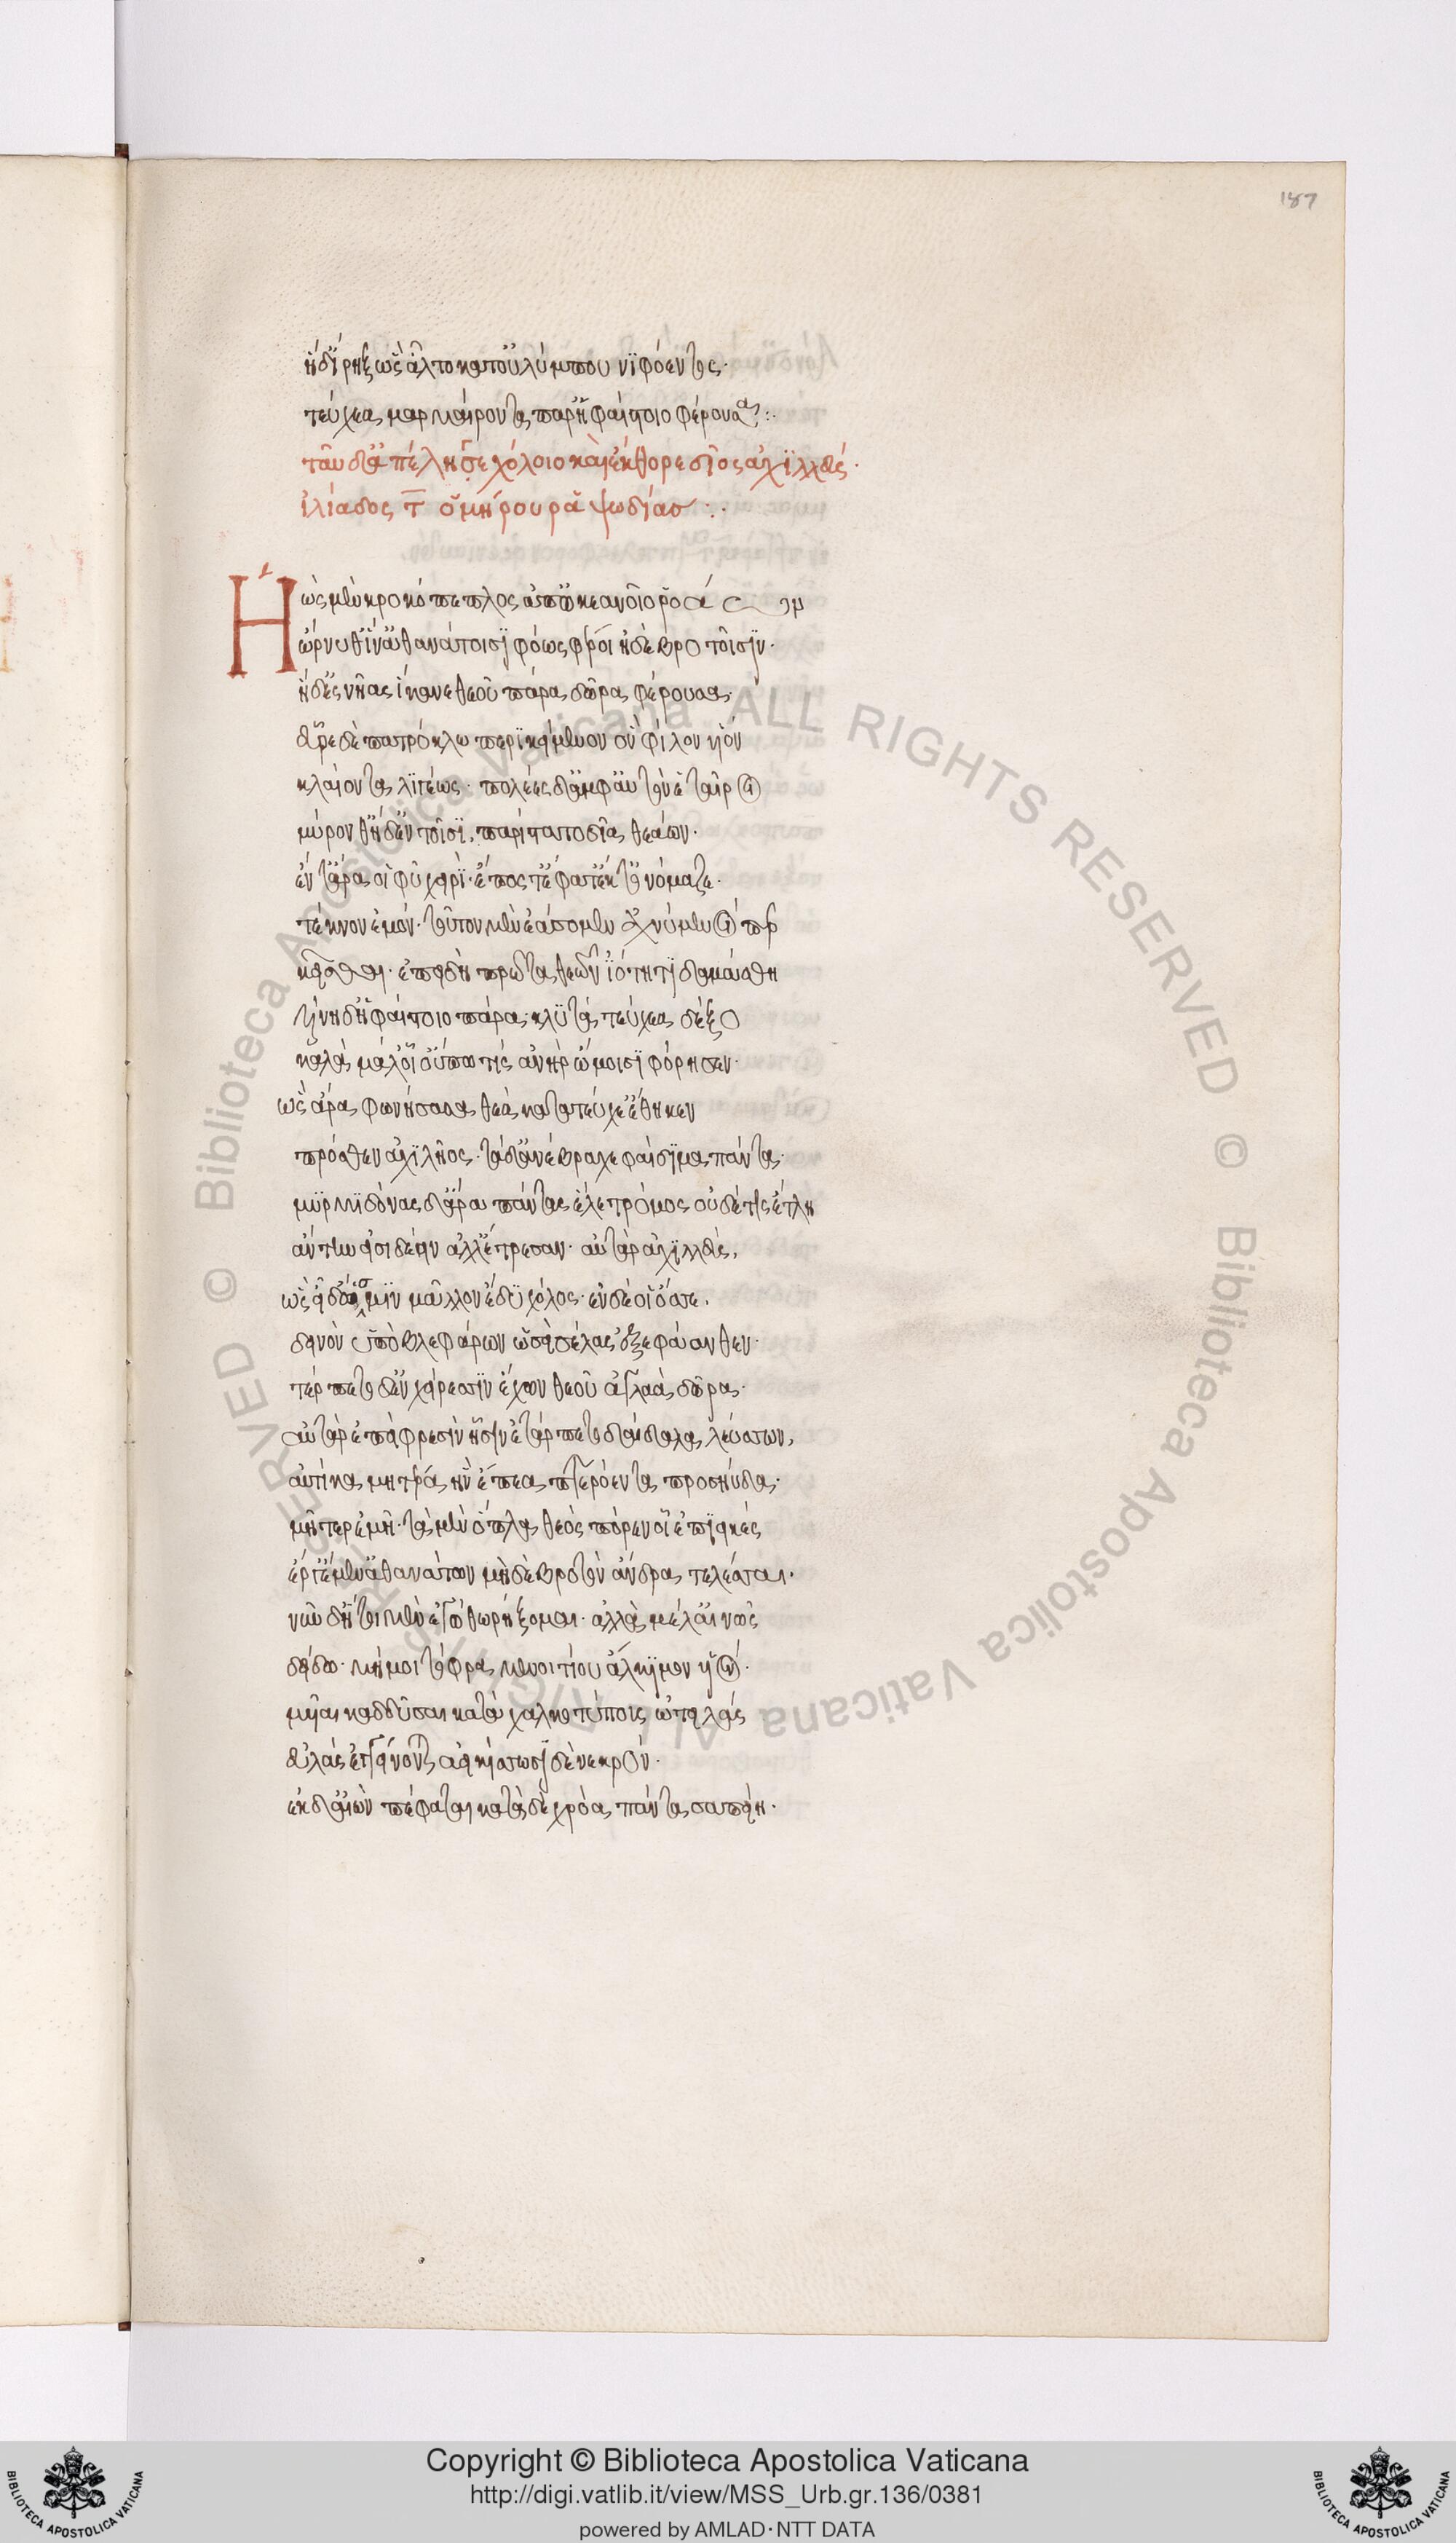 187
ἡ δ' ἵρηξ ὣς ἆλτο κατ' οὐλύμπου νιφόεντος·
τεύχεα μαρμαίροντα παρ' ἡφαίστοιο φέρουσα:·
ταῦ δ' ἀπέληγε χόλοιο καὶ ἔκθορε δῖος ἀχιλλεύς·
ἰλιάδος τ ὁμήρου ῥαψωδίας :·
Ἠὼς μὲν κροκόπεπλος ἀπ' ὠκεανοῖο ῥοάων
ὤρνυθ' ἵν' ἀθανάτοισι φόως φέροι ἠδὲ βροτοῖσιν·
ἡ δ' ἐς νῆας ἵκανε θεοῦ πάρα δῶρα φέρουσα·
εὗρε δὲ πατρόκλω περικείμενον ὃν φίλον υἱόν
κλαίοντα λιγέως· πολέες δ' ἀμφ' αὐτὸν ἑταῖροι
μύρονθ' ἡ δ' ἐν τοῖσι παρίστατο δῖα θεάων·
ἔν τ' ἄρα οἱ φῦ χειρὶ· ἔπος τ' ἔφατ' ἔκ τ' ὀνόμαζε·
τέκνον ἐμόν· τοῦτον μὲν ἐάσομεν ἀχνύμενοί περ
κεῖσθαι· ἐπειδὴ πρῶτα θεῶν ἰότητι δαμάσθη
τύνη δ' ἡφαίστοιο πάρα κλυτὰ τεύχεα δέξο
καλὰ μάλ' οἷ' οὔπω τίς ἀνὴρ ὤμοισι φόρησεν·
ὣς ἄρα φωνήσασα θεὰ κατὰ τεύχε' ἔθηκεν
πρόσθεν ἀχιλῆος· τὰ δ' ἀνέβραχε δαίδαλα πάντα·
μυρμιδόνας δ' ἄρα πάντας ἕλε τρόμος οὐδέ τις ἔτλη
ἄντην εἰσιδέειν ἀλλ' ἔτρεσαν· αὐτὰρ ἀχιλλεὺς,
ὡς εἶδ' ὥς μιν μᾶλλον ἔδυ χόλος· ἐν δέ οἱ ὄσσε.
δεινὸν ὑπὸ βλεφάρων ὡσεὶ σέλας ἐξεφάανθεν·
τέρπετο δ' ἐν χείρεσσιν ἔχων θεοῦ ἀγλαὰ δῶρα·
αὐτὰρ ἐπεὶ φρεσὶν ᾗσιν ἐτάρπετο δαίδαλα λεύσσων,
αὐτίκα μητέρα ἣν ἔπεα πτερόεντα προσηύδα·
μῆτερ ἐμὴ· τὰ μὲν ὅπλα θεὸς πόρεν οἷ' ἐπιεικὲς
ἔργ' ἔμεν ἀθανάτων μὴ δὲ βροτὸν ἄνδρα τελέσσαι·
νῦν δ' ἤτοι μὲν ἐγὼ θωρήξομαι· ἀλλὰ μάλ' αἰνῶς
δείδω· μή μοι τόφρα μενοιτίου ἄλκιμον υἱόν·
μυῖαι καδδῦσαι κατὰ χαλκοτύπους ὠτειλάς
εὐλὰς ἐγγείνωνται ἀεικίσσωσι δὲ νεκρόν·
ἐκ δ' αἰὼν πέφαται κατὰ δὲ χρόα πάντα σαπείη·
© Biblioteca Apostolica Vaticana ALL RIGHTS RESERVED © Biblioteca Apostolica Vaticana ALL RIGHTS RESERVED
Copyright © Biblioteca Apostolica Vaticana
http://digi.vatlib.it/view/MSS_Urb.gr.136/0381
powered by AMLAD·NTT DATA
BIBLIOTECA APOSTOLICA VATICANA
BIBLIOTECA APOSTOLICA VATICANA